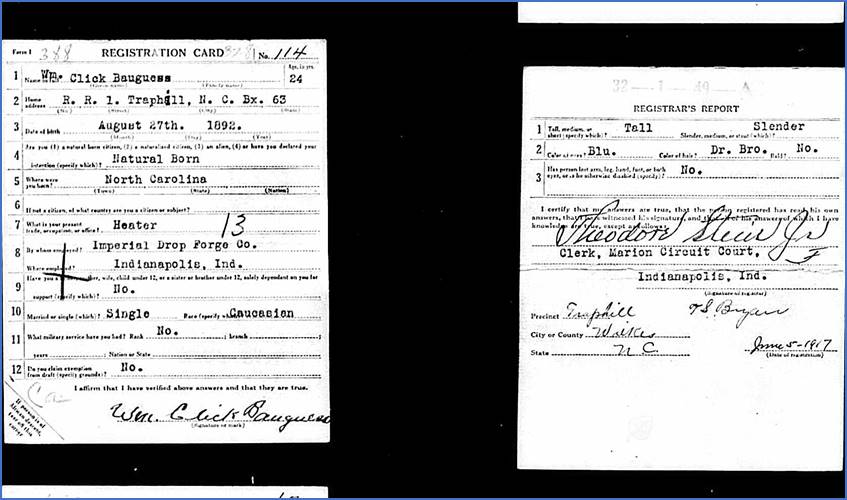 Form 1 388 REGISTRATION CARD 378 No. 114
1 Name in full Wm. Click Bauguess Age, in yrs. 24
(Given name) (Family name)
2 Home address R. R. 1. Traphill, N. C. Bx. 63
(No.) (Street) (City) (State)
3 Date of birth August 27th. 1892.
(Month) (Day) (Year)
4 Are you (1) a natural born citizen, (2) a naturalized citizen, (3) an alien, (4) or have you declared your
intention (specify which)? Natural Born
5 Where were you born? North Carolina
(Town) (State) (Nation)
6 If not a citizen, of what country are you a citizen or subject?
7 What is your present trade, occupation, or office? Heater 13
8 By whom employed? Imperial Drop Forge Co.
Where employed? Indianapolis, Ind.
9 Have you a father, wife, child under 12, or a sister or brother under 12, solely dependent on you for
support (specify which)? No.
10 Married or single (which)? Single Race (specify which)? Caucasian
11 What military service have you had? Rank No. ; branch
years ; Nation or State
12 Do you claim exemption from draft (specify grounds)? No.
I affirm that I have verified above answers and that they are true.
Wm. Click Bauguess
(Signature or mark)
If person is of African descent, tear off this corner
32-1-49-A
REGISTRAR'S REPORT
1 Tall, medium, or short (specify which)? Tall Slender, medium, or stout (which)? Slender
2 Color of eyes? Blu. Color of hair? Dr. Bro. Bald? No.
3 Has person lost arm, leg, hand, foot, or both
eyes, or is he otherwise disabled (specify)? No.
I certify that my answers are true, that the person registered has read his own
answers, that I have witnessed his signature, and that all of his answers of which I have
knowledge are true, except as follows:
Theodore Stein Jr
Clerk, Marion Circuit Court,
Indianapolis, Ind.
(Signature of registrar)
Precinct Traphill T S Bryan
City or County Wilkes
State N C. June 5-1917
(Date of registration)